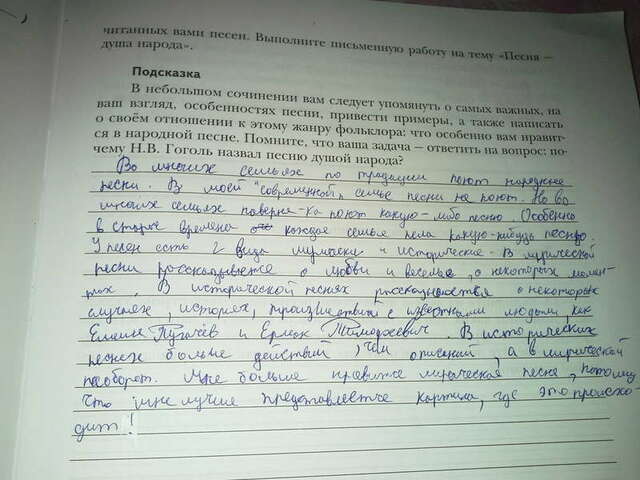 читанных вами песен. Выполните письменную работу на тему «Песня —
душа народа».
Подсказка
В небольшом сочинении вам следует упомянуть о самых важных, на
ваш взгляд, особенностях песни, привести примеры, а также написать
о своём отношении к этому жанру фольклора: что особенно вам нравит-
ся в народной песне. Помните, что ваша задача — ответить на вопрос: по-
чему Н.В. Гоголь назвал песню душой народа?
Во многих семьях по традиции поют народные
песни. В моей "современной" семье песни не поют. Но во
многих семьях наверне-ка поют какую-либо песню. Особенно
в старые времена каждая семья пела какую-нибудь песню.
У песен есть 2 вида лирические и исторические. В лирической
песни рассказывается о любви и веселье, о некоторых момен-
тах. В исторической песнях рассказывается о некоторых
случаях, историях, происшествий с известными людьми, как
Емельян Пугачёв и Ермак Тимофеевич. В исторических
песнях больше действий, чем описаний, а в лирической
наоборот. Мне больше нравится лирическая песня, потому
что мне лучше представляется картина, где это происхо-
дит!